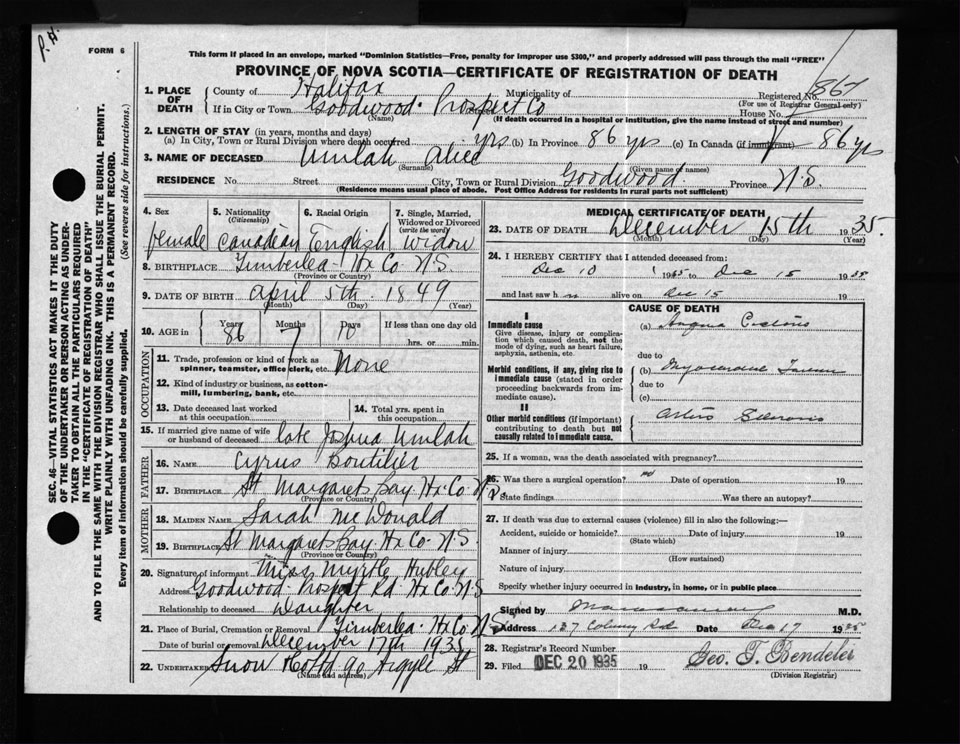 P. H.
FORM 6
This form if placed in an envelope, marked "Dominion Statistics—Free, penalty for improper use $300," and properly addressed will pass through the mail "FREE"
PROVINCE OF NOVA SCOTIA—CERTIFICATE OF REGISTRATION OF DEATH
1. PLACE OF DEATH
County of Halifax Municipality of Registered No. 867
(For use of Registrar General only)
If in City or Town Goodwood Prospect Co House No.
(Name)
(If death occurred in a hospital or institution, give the name instead of street and number)
2. LENGTH OF STAY (in years, months and days)
(a) In City, Town or Rural Division where death occurred yrs (b) In Province 86 yrs (c) In Canada (if immigrant) 86 yrs
3. NAME OF DECEASED Umlah Alice
(Surname) (Given name or names)
RESIDENCE No. Street City, Town or Rural Division Goodwood Province N.S.
(Residence means usual place of abode. Post Office Address for residents in rural parts not sufficient)
4. Sex 5. Nationality (Citizenship) 6. Racial Origin 7. Single, Married, Widowed or Divorced (write the word)
female Canadian English widow
8. BIRTHPLACE Timberlea Hx Co N.S.
(Province or Country)
9. DATE OF BIRTH april 5th 1849
(Month) (Day) (Year)
10. AGE in Years Months Days If less than one day old
86 7 10 hrs. or min.
OCCUPATION
11. Trade, profession or kind of work as spinner, teamster, office clerk, etc. None
12. Kind of industry or business, as cotton-mill, lumbering, bank, etc.
13. Date deceased last worked at this occupation 14. Total yrs. spent in this occupation
15. If married give name of wife or husband of deceased late Joshua Umlah
FATHER
16. NAME Cyrus Boutilier
17. BIRTHPLACE St Margarets Bay Hx Co N.S.
(Province or Country)
MOTHER
18. MAIDEN NAME Sarah McDonald
19. BIRTHPLACE St Margarets Bay Hx Co N.S.
(Province or Country)
20. Signature of informant Miss Myrtle Hubley
Address Goodwood Prospect Rd Hx Co N.S
Relationship to deceased Daughter
21. Place of Burial, Cremation or Removal Timberlea Hx Co N.S
Date of burial or removal December 17th 1935
22. UNDERTAKER Snow & Co Ltd 90 Argyle St
(Name and address)
MEDICAL CERTIFICATE OF DEATH
23. DATE OF DEATH December 15th 1935.
(Month) (Day) (Year)
24. I HEREBY CERTIFY that I attended deceased from:
Dec 10 1935 to Dec 15 1935
and last saw h alive on Dec 15 19
I
Immediate cause
Give disease, injury or complication which caused death, not the mode of dying, such as heart failure, asphyxia, asthenia, etc.
Morbid conditions, if any, giving rise to immediate cause (stated in order proceeding backwards from immediate cause).
II
Other morbid conditions (if important) contributing to death but not causally related to immediate cause.
CAUSE OF DEATH
(a) Angina Pectoris
due to
(b) Myocardial
due to
(c)
Arterio Sclerosis
25. If a woman, was the death associated with pregnancy?
26. Was there a surgical operation? no Date of operation 19
State findings Was there an autopsy?
27. If death was due to external causes (violence) fill in also the following:—
Accident, suicide or homicide? Date of injury 19
(State which)
Manner of injury
(How sustained)
Nature of injury
Specify whether injury occurred in industry, in home, or in public place
Signed by M.D.
Address 137 Rd Date Dec 17 1935
28. Registrar's Record Number
29. Filed DEC 20 1935 19 Geo. T. Bendeler
(Division Registrar)
SEC. 46—VITAL STATISTICS ACT MAKES IT THE DUTY
OF THE UNDERTAKER OR PERSON ACTING AS UNDER-
TAKER TO OBTAIN ALL THE PARTICULARS REQUIRED
IN THE "CERTIFICATE OF REGISTRATION OF DEATH"
AND TO FILE THE SAME WITH THE DIVISION REGISTRAR WHO SHALL ISSUE THE BURIAL PERMIT.
WRITE PLAINLY WITH UNFADING INK. THIS IS A PERMANENT RECORD.
Every item of information should be carefully supplied. (See reverse side for instructions.)